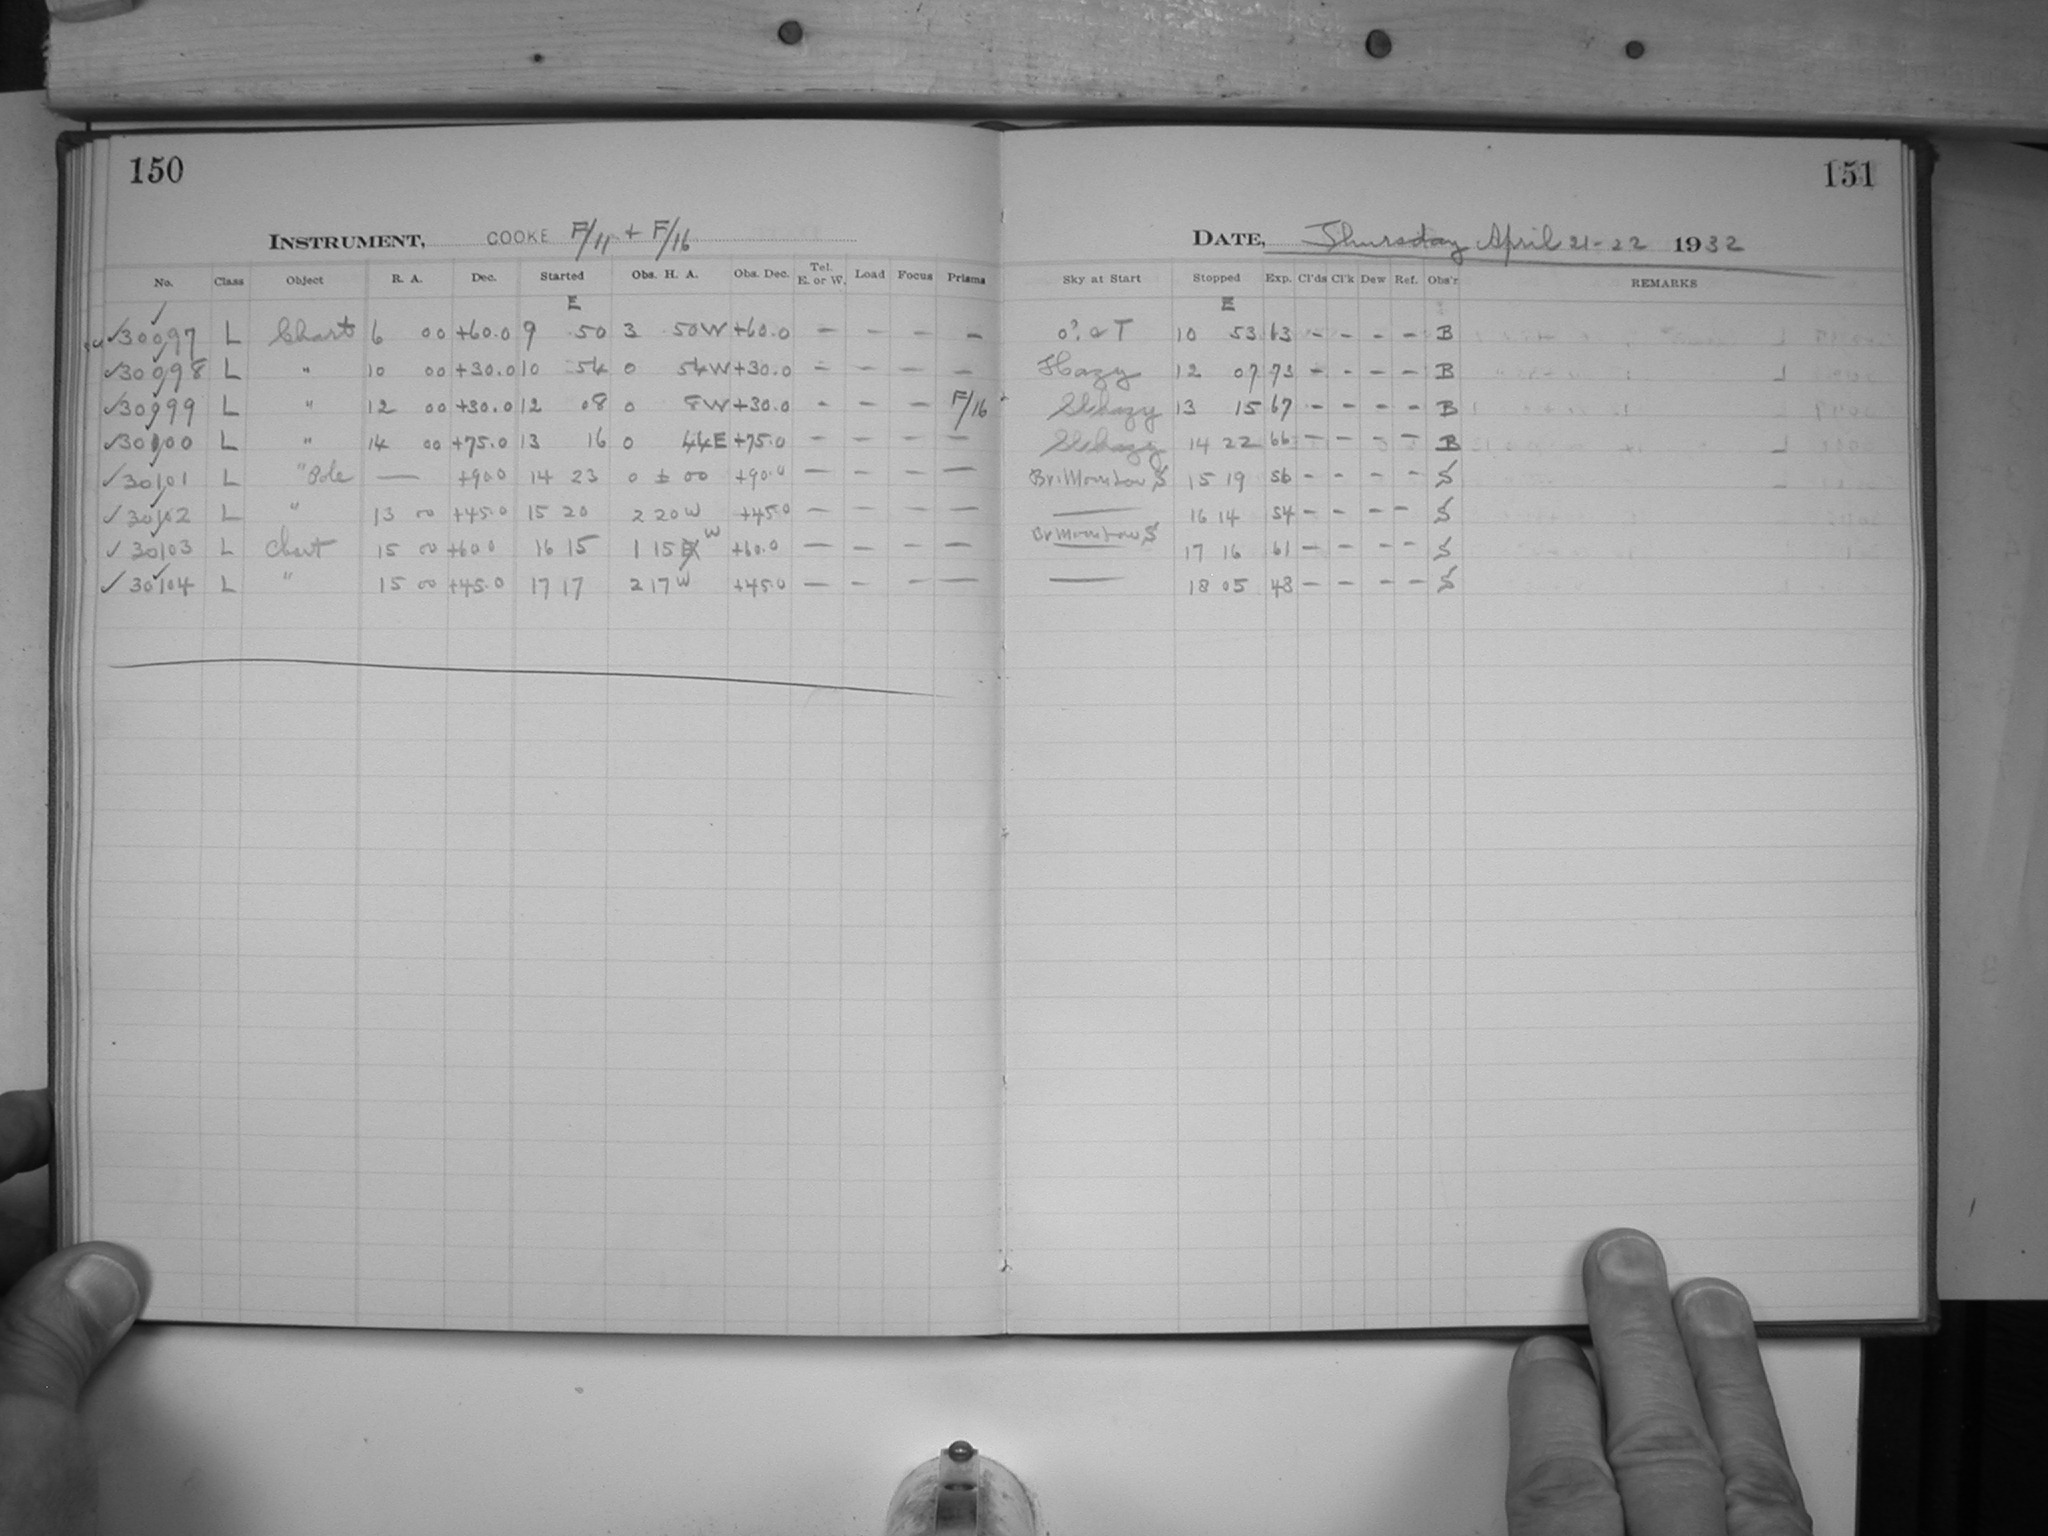 150
INSTRUMENT, COOKE F/11 + F/16
No. Class Object R. A. Dec. Started Obs. H. A. Obs. Dec. Tel. E. or W. Load Focus Prisms
E
✓30097 L Chart 6 00 +60.0 9 50 3 50W +60.0 — — — —
✓30098 L " 10 00 +30.0 10 54 0 54W +30.0 — — — —
✓30099 L " 12 00 +30.0 12 08 0 8W +30.0 - — — F/16
✓30100 L " 14 00 +75.0 13 16 0 44E +75.0 — — — —
✓30101 L " Pole — +90.0 14 23 0 ± 00 +90.0 — — — —
✓30102 L " 13 00 +45.0 15 20 2 20W +45.0 — — — —
✓30103 L Chart 15 00 +60.0 16 15 1 15 W +60.0 — — — —
✓30104 L " 15 00 +45.0 17 17 2 17W +45.0 — — - —
151
DATE, Thursday April 21-22 1932
Sky at Start Stopped Exp. Cl'ds Cl'k Dew Ref. Obs'r REMARKS
E
0? & T 10 53 63 - - - - B
Hazy 12 07 73 - - - - B
Sl hazy 13 15 67 - - - - B
Sl hazy 14 22 66 - - - - B
Br. Moon low S 15 19 56 - - - - S
— 16 14 54 - - - - S
Br Moon low S 17 16 61 - - - - S
— 18 05 48 - - - - S